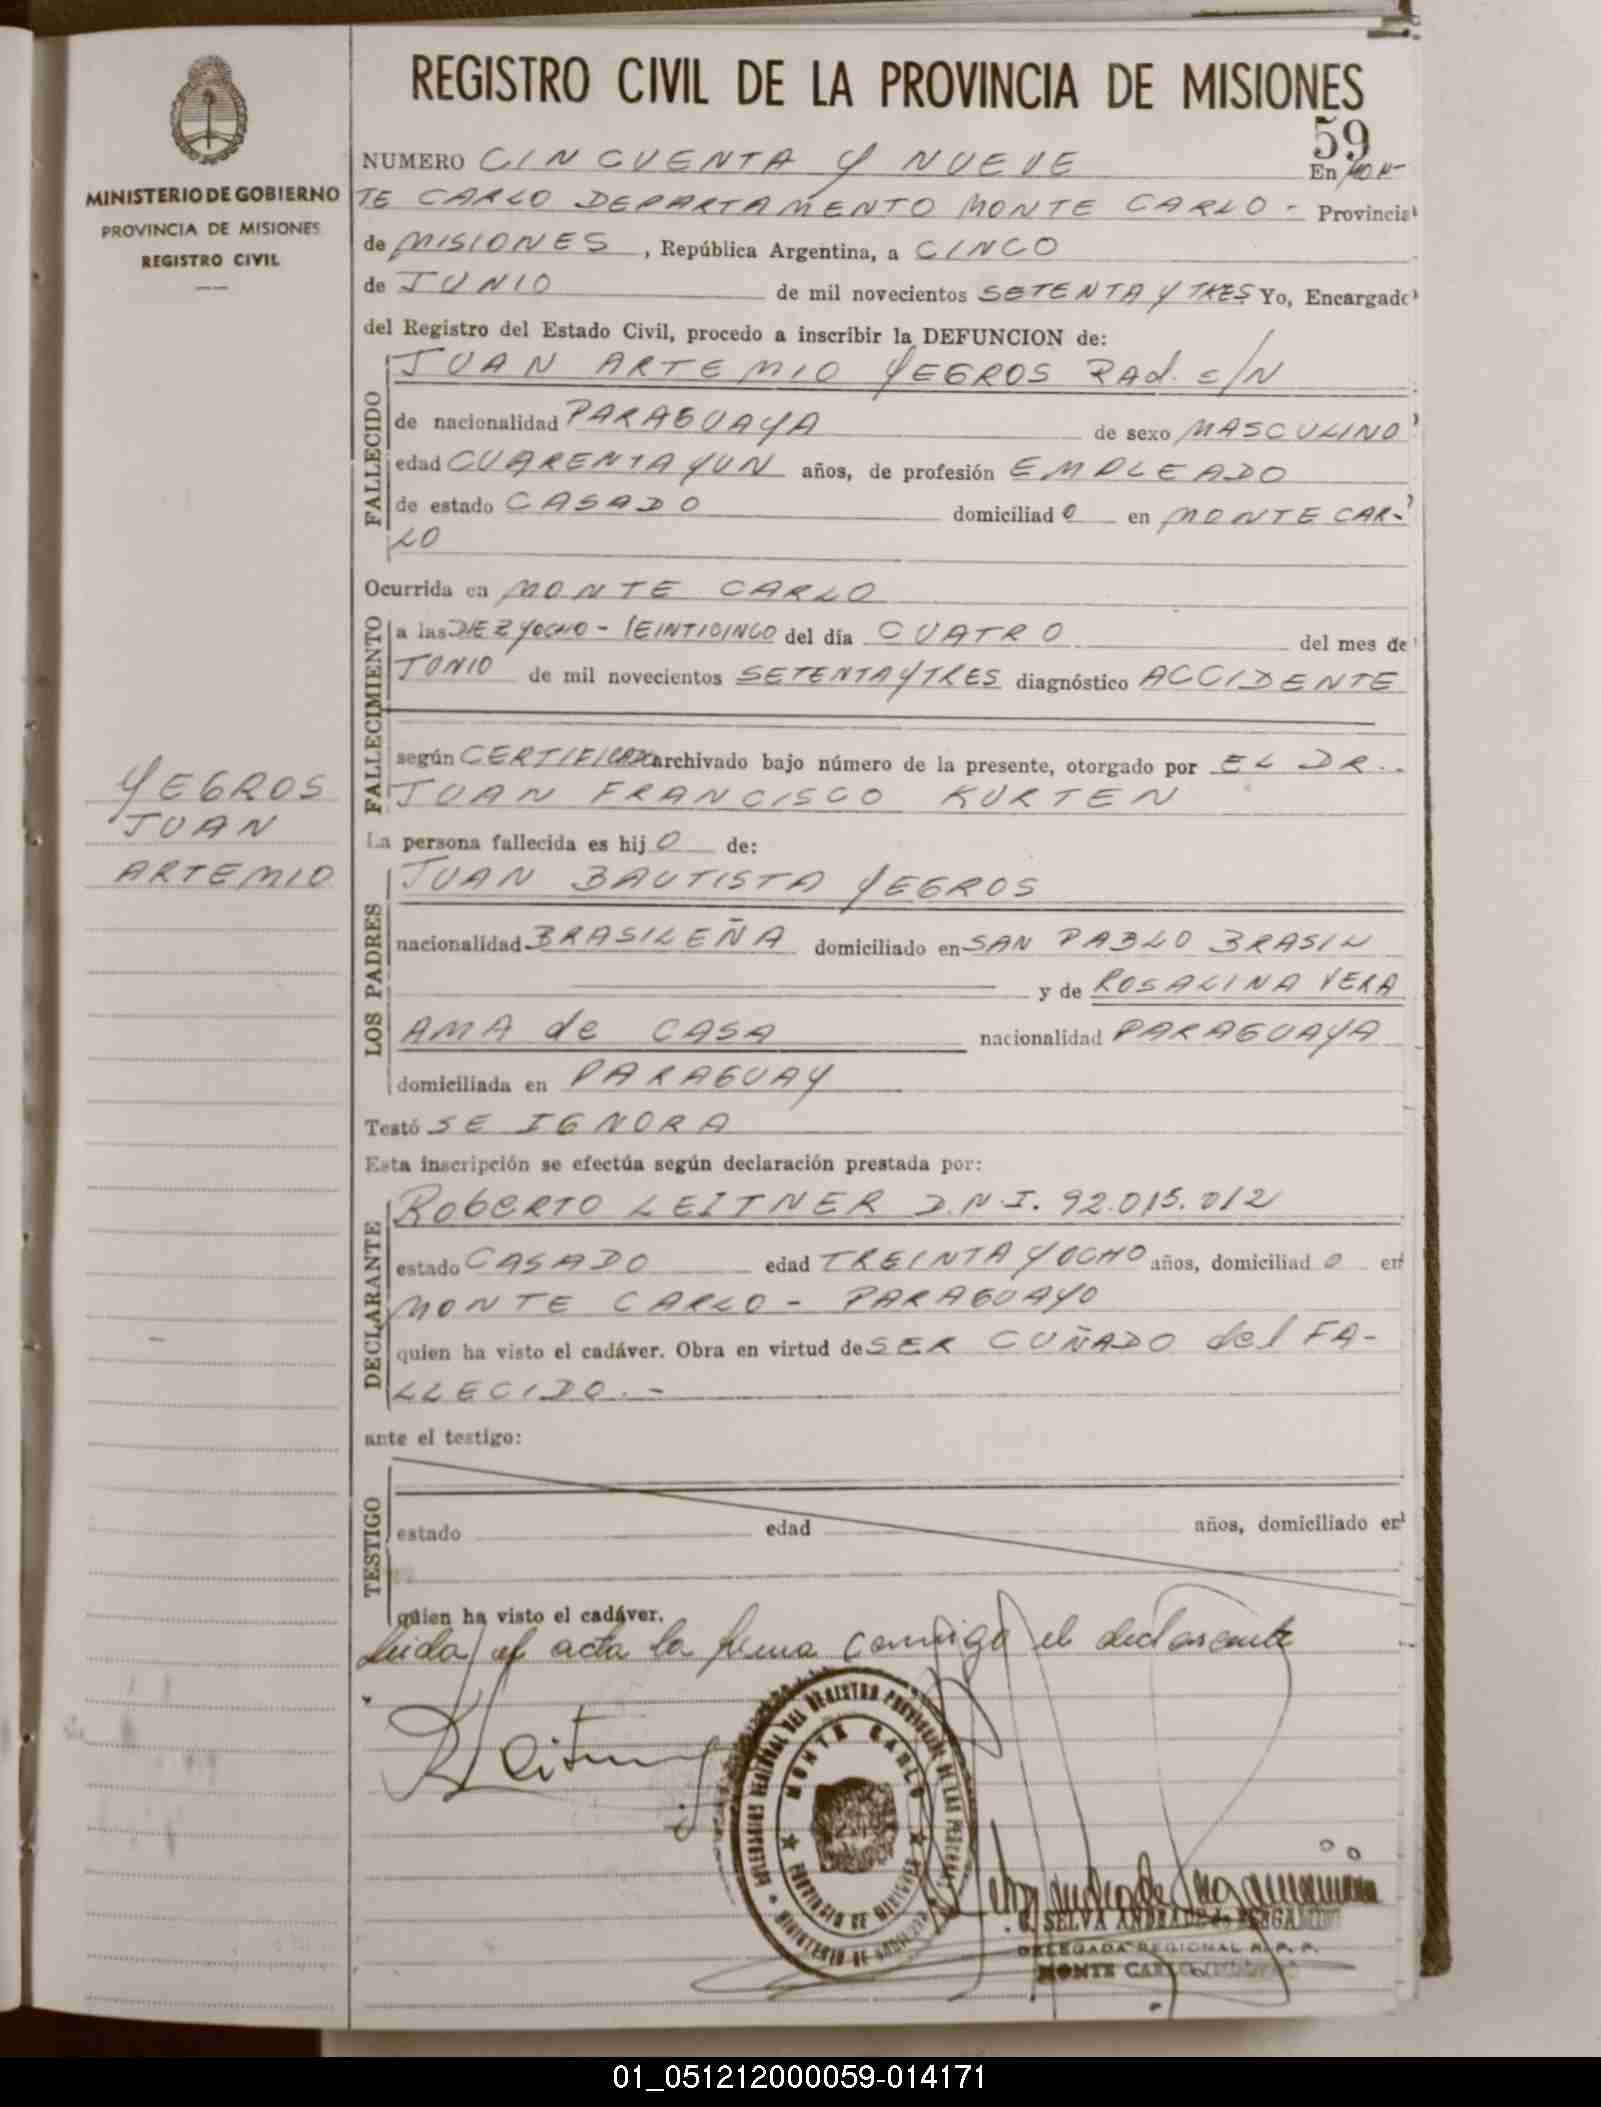 REGISTRO CIVIL DE LA PROVINCIA DE MISIONES
59
MINISTERIO DE GOBIERNO
PROVINCIA DE MISIONES
REGISTRO CIVIL
NUMERO CINCUENTA Y NUEVE En MON-
TE CARLO DEPARTAMENTO MONTE CARLO - Provincia
de MISIONES, República Argentina, a CINCO
de JUNIO de mil novecientos SETENTA Y TRES Yo, Encargado
del Registro del Estado Civil, procedo a inscribir la DEFUNCION de:
FALLECIDO
JUAN ARTEMIO YEGROS RAd. S/N
de nacionalidad PARAGUAYA de sexo MASCULINO
edad CUARENTA Y UN años, de profesión EMPLEADO
de estado CASADO domiciliad O en MONTE CAR-
LO
Ocurrida en MONTE CARLO
FALLECIMIENTO
a las DIEZ Y OCHO - VEINTICINCO del día CUATRO del mes de
JUNIO de mil novecientos SETENTA Y TRES diagnóstico ACCIDENTE
según CERTIFICADO archivado bajo número de la presente, otorgado por EL DR.
JUAN FRANCISCO KURTEN
YEGROS
JUAN
ARTEMIO
La persona fallecida es hij O de:
LOS PADRES
JUAN BAUTISTA YEGROS
nacionalidad BRASILEÑA domiciliado en SAN PABLO BRASIL
y de ROSALINA VERA
AMA de CASA nacionalidad PARAGUAYA
domiciliada en PARAGUAY
Testó SE IGNORA
Esta inscripción se efectúa según declaración prestada por:
DECLARANTE
ROBERTO LEITNER D.N.I. 92.015.012
estado CASADO edad TREINTA Y OCHO años, domiciliad O en
MONTE CARLO - PARAGUAYO
quien ha visto el cadáver. Obra en virtud de SER CUÑADO del FA-
LLECIDO.-
ante el testigo:
TESTIGO
estado edad años, domiciliado en
quien ha visto el cadáver.
Leida el acta la firma conmigo el declarante
R Leitner
MONTE CARLO
PROVINCIA DE MISIONES
MINISTERIO DE GOBIERNO
SELVA ANDRADE de BERGAMINI
DELEGADA REGIONAL R. P. P.
MONTE CARLO
01_051212000059-014171